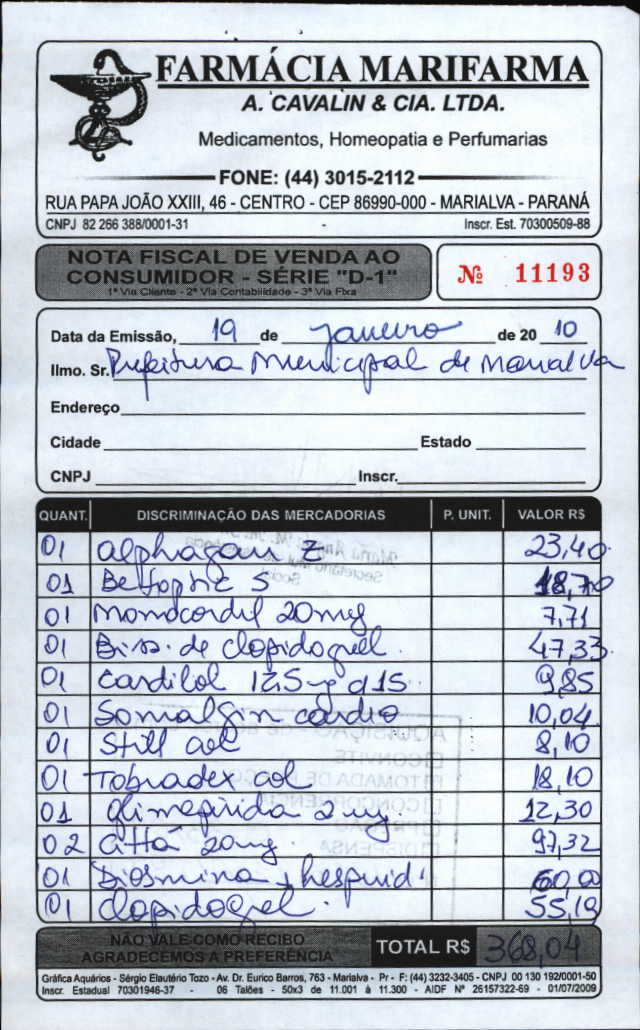 FARMÁCIA MARIFARMA
A. CAVALIN & CIA. LTDA.
Medicamentos, Homeopatia e Perfumarias
FONE: (44) 3015-2112
RUA PAPA JOÃO XXIII, 46 - CENTRO - CEP 86990-000 - MARIALVA - PARANÁ
CNPJ 82 266 388/0001-31 - Inscr. Est. 70300509-88
NOTA FISCAL DE VENDA AO
CONSUMIDOR - SÉRIE "D-1"
1ª Via Cliente - 2ª Via Contabilidade - 3ª Via Fixa
Nº 11193
Data da Emissão, 19 de janeiro de 20 10
Ilmo. Sr. Prefeitura Municipal de Marialva
Endereço
Cidade Estado
CNPJ Inscr.
QUANT. DISCRIMINAÇÃO DAS MERCADORIAS P. UNIT. VALOR R$
01 Alphagan Z 23,40
01 Betoptic S 18,70
01 Monocordil 20mg 7,71
01 Biss. de clopidogrel 47,33
01 Cardilol 12,5mg d 15 9,85
01 Somalgin cardio 10,04
01 Still col 8,10
01 Tobradex col 18,10
01 Glimepirida 2mg. 12,30
02 Cittá 20mg. 97,32
01 Diosmina + hesperid. 60,00
01 Clopidogrel. 55,19
NÃO VALE COMO RECIBO
AGRADECEMOS A PREFERÊNCIA
TOTAL R$ 368,04
Gráfica Aquários - Sérgio Elautério Tozo - Av. Dr. Eurico Barros, 763 - Marialva - Pr - F: (44) 3232-3405 - CNPJ 00 130 192/0001-50
Inscr. Estadual 70301946-37 - 06 Talões - 50x3 de 11.001 à 11.300 - AIDF Nº 26157322-69 - 01/07/2009